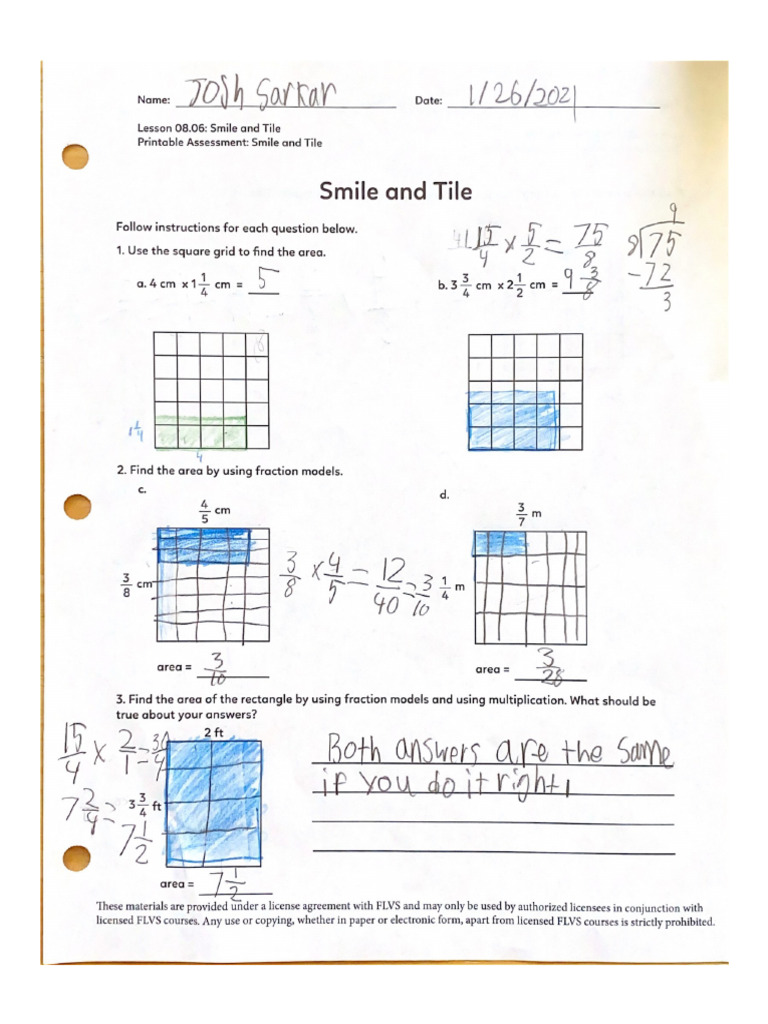 Name: Josh Sarkar Date: 1/26/2021
Lesson 08.06: Smile and Tile
Printable Assessment: Smile and Tile
Smile and Tile
Follow instructions for each question below.
15/4 × 5/2 = 75/8
9
8)75
-72
3
1. Use the square grid to find the area.
a. 4 cm x 1 1/4 cm = 5
b. 3 3/4 cm x 2 1/2 cm = 9 3/8
1 1/4
4
2. Find the area by using fraction models.
c.
4/5 cm
3/8 cm
3/8 × 4/5 = 12/40 = 3/10
area = 3/10
d.
3/7 m
1/4 m
area = 3/28
3. Find the area of the rectangle by using fraction models and using multiplication. What should be
true about your answers?
15/4 × 2/1 = 30/4
7 2/4 =
7 1/2
2 ft
3 3/4 ft
area = 7 1/2
Both answers are the same
if you do it right.
These materials are provided under a license agreement with FLVS and may only be used by authorized licensees in conjunction with
licensed FLVS courses. Any use or copying, whether in paper or electronic form, apart from licensed FLVS courses is strictly prohibited.